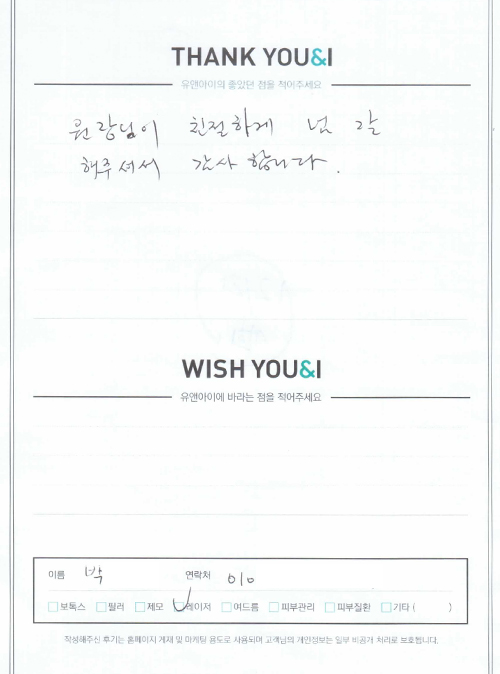 THANK YOU&I
유앤아이의 좋았던 점을 적어주세요
원장님이 친절하게 넘 잘
해주셔서 감사합니다.
WISH YOU&I
유앤아이에 바라는 점을 적어주세요
이름 박 연락처 010
보톡스 필러 제모 레이저 여드름 피부관리 피부질환 기타 ( )
작성해주신 후기는 홈페이지 게재 및 마케팅 용도로 사용되며 고객님의 개인정보는 일부 비공개 처리로 보호됩니다.